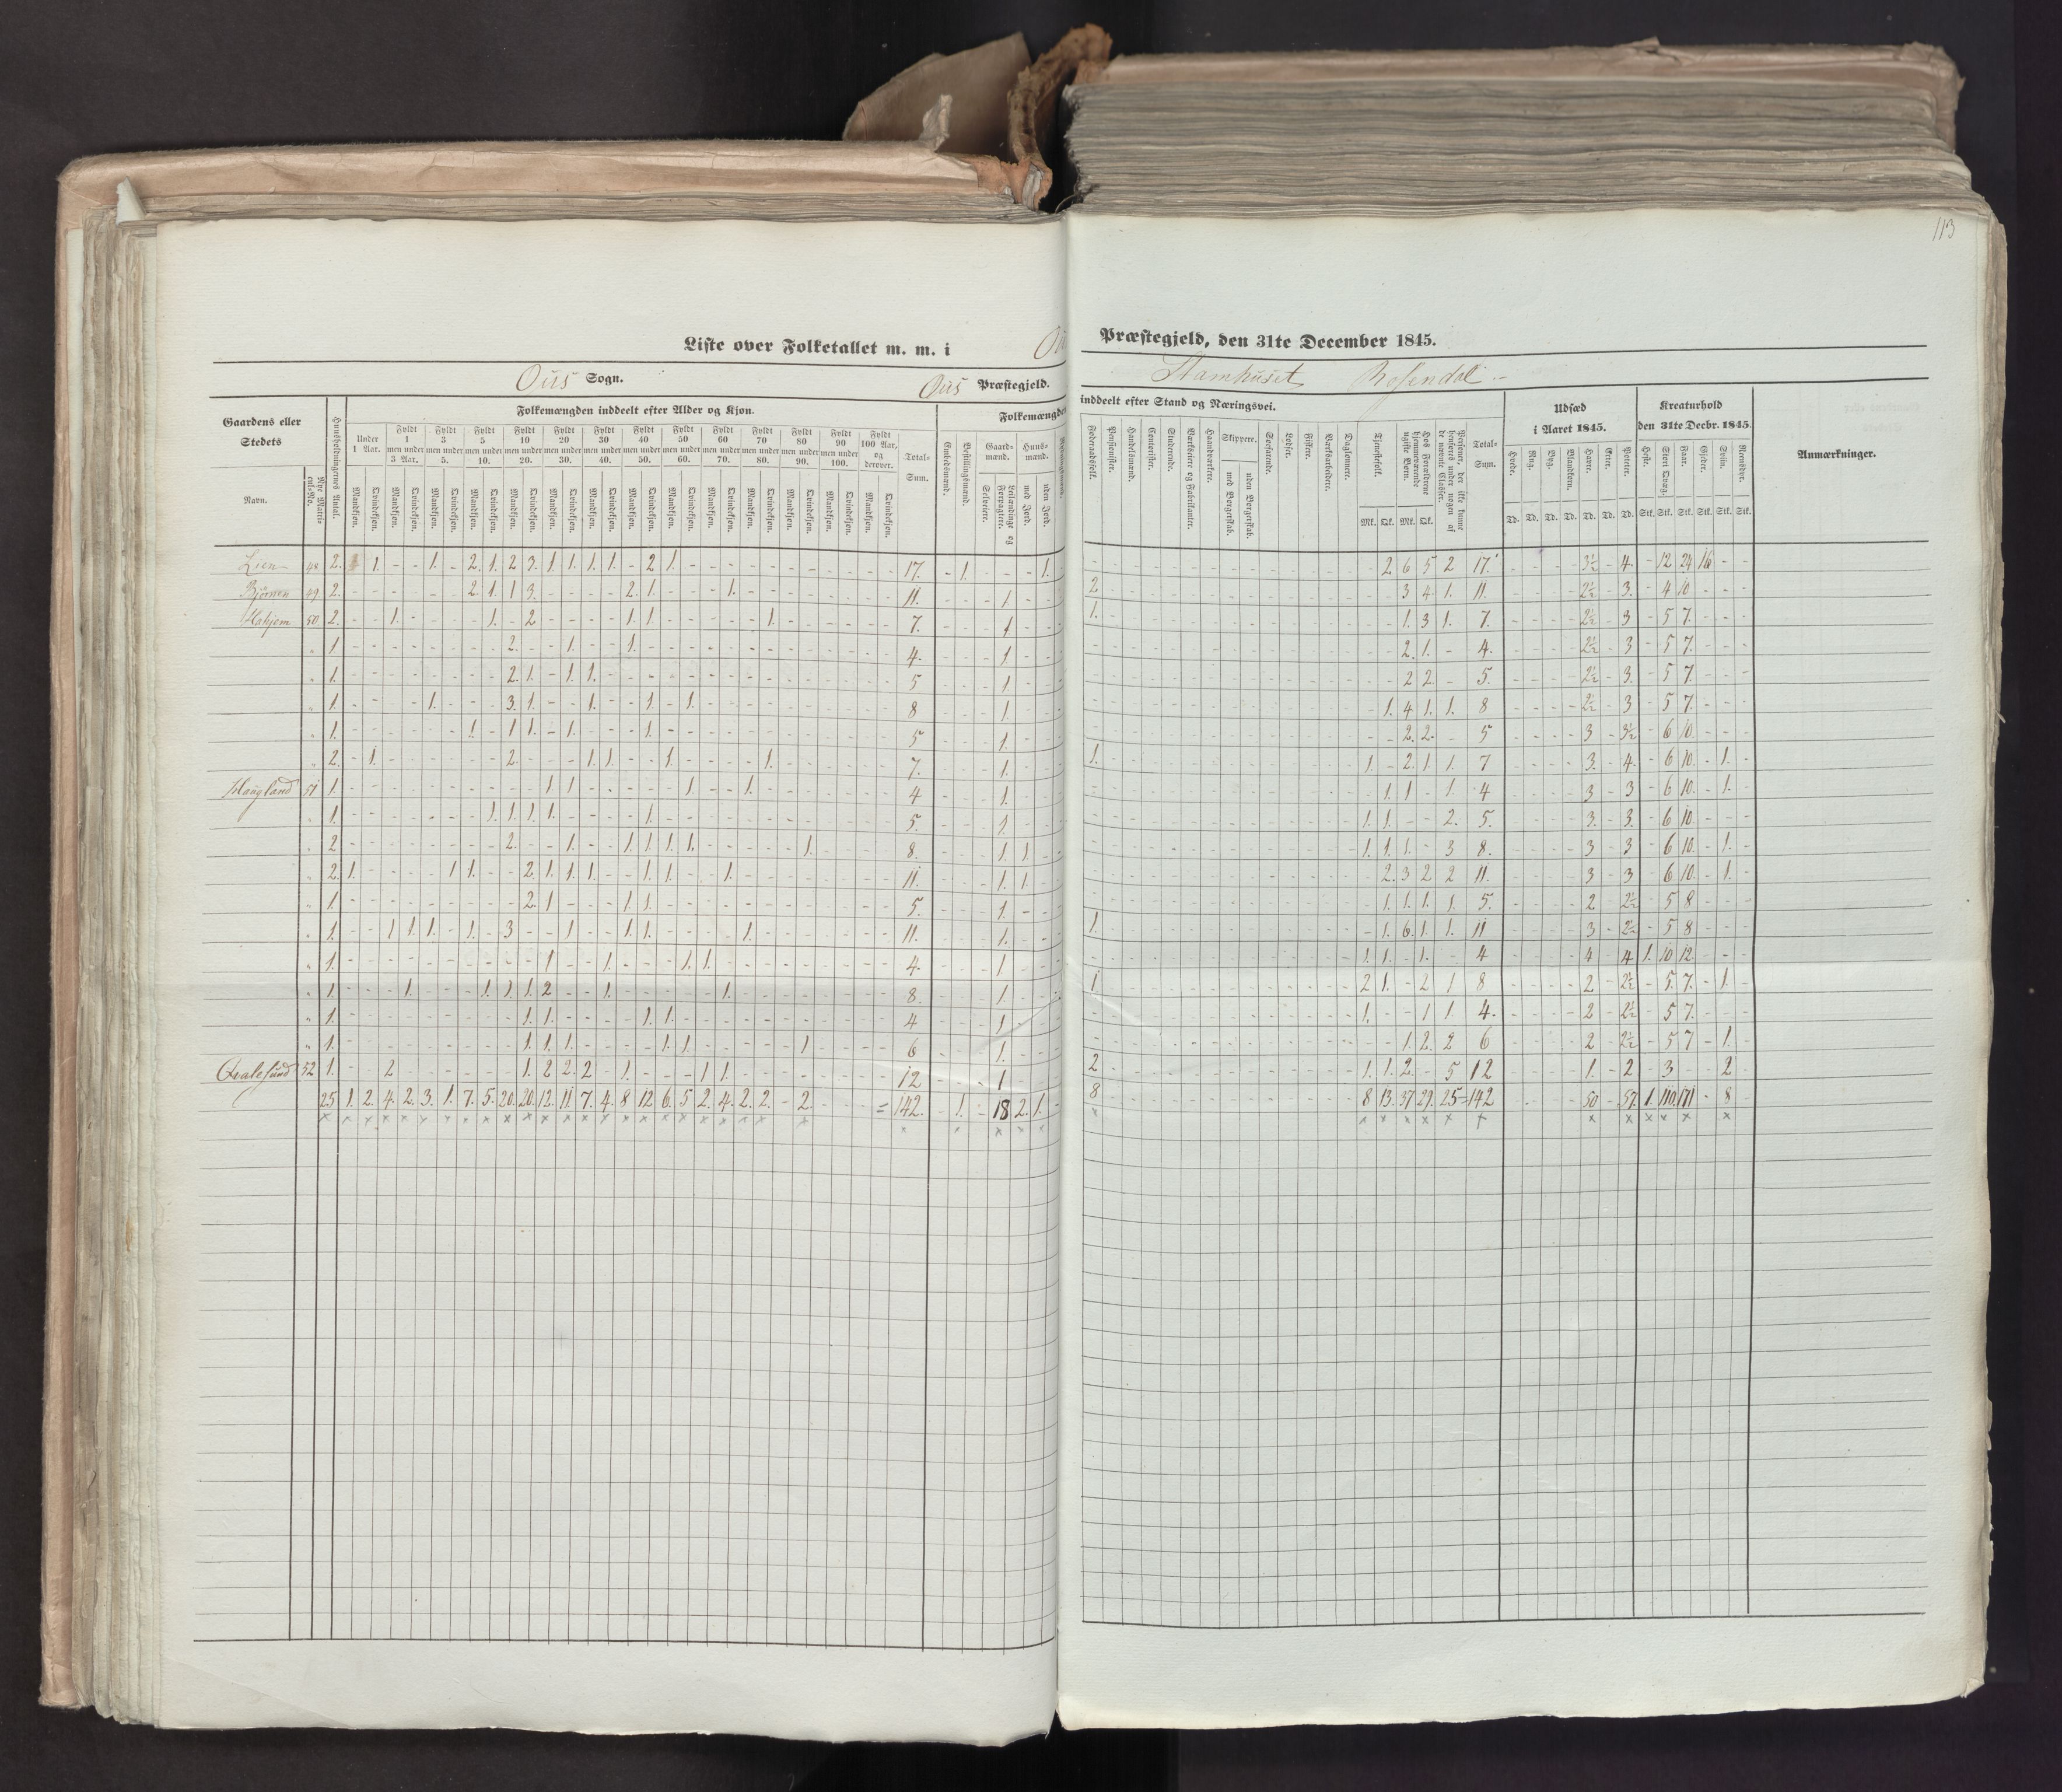 113
Liste over Folketallet m. m. i
Præstegjeld, den 31te December 1845.
Ous Sogn.
Ous Præstegjeld.
Stamhuset Rosendal
Gaardens eller Stedets
Navn.
Nye Matricul-No.
Huusholdningernes Antal.
Folkemængden inddeelt efter Alder og Kjøn.
Under 1 Aar.
Fyldt 1 men under 3 Aar.
Fyldt 3 men under 5.
Fyldt 5 men under 10.
Fyldt 10 men under 20.
Fyldt 20 men under 30.
Fyldt 30 men under 40.
Fyldt 40 men under 50.
Fyldt 50 men under 60.
Fyldt 60 men under 70.
Fyldt 70 men under 80.
Fyldt 80 men under 90.
Fyldt 90 men under 100.
Fyldt 100 Aar. og derover.
Mandkjøn. Qvindekjøn.
Total-Sum.
Folkemængden
inddeelt efter Stand og Næringsvei.
Embedsmænd.
Bestillingsmænd.
Gaardmænd.
Selveiere.
Leilændinge og Forpagtere.
Huusmænd.
med Jord.
uden Jord.
Føderaadsfolk.
Pensionister.
Handelsmænd.
Contorister.
Studerende.
Værkseiere og Fabrikanter.
Haandværkere.
Skippere.
med Borgerskab.
uden Borgerskab.
Søefarende.
Lodser.
Fiskere.
Værksarbeidere.
Daglønnere.
Tjenestefolk.
Hos Forældrene hjemmeværende ugifte Børn.
Personer, der ikke kunne henføres under nogen af de nævnte Classer.
Mk. Qk. Mk. Qk.
Total-Sum.
Udsæd i Aaret 1845.
Hvede. Rug. Byg. Blandkorn. Havre. Erter. Poteter.
Td. Td. Td. Td. Td. Td. Td.
Kreaturhold den 31te Decbr. 1845.
Heste. Stort Qvæg. Faar. Gjeder. Sviin. Rensdyr.
Stk. Stk. Stk. Stk. Stk. Stk.
Anmærkninger.
Lien 48 2. 1. 1. 2. 1. 2 3. 1. 1. 1. 1. 2 1. 17. 1. 1. 2 6 5 2 17. 3½ 4. 12 24 16
Bjørnen 49. 2. 2. 1. 1 3. 2. 1. 1. 11. 1 2 3 4. 1. 11. 2½ 3. 4 10
Hatjem 50 2. 1. 1. 2 1. 1. 1. 7. 1 1. 1. 3 1. 7. 2½ 3 5 7.
" 1 2. 1. 1. 4. 1 2. 1. 4. 2½ 3 5 7.
" 1. 2. 1. 1. 1. 5 1. 2 2. 5. 2½ 3. 5 7.
" 1. 1. 3. 1. 1. 1. 1. 8 1. 1. 4. 1. 1. 8 2½ 3 5 7.
" 1. 1. 1 1. 1. 1. 5 1. 2. 2. 5 3 3½ 6 10.
" 2. 1. 2. 1 1. 1. 1. 7. 1. 1. 1. 2. 1 1 7 3. 4. 6 10. 1.
Haugland 51 1. 1 1 1. 1. 4 1. 1. 1 1 4 3 3 6 10. 1.
" 1. 1. 1. 1. 1. 1. 5. 1. 1. 1. 2. 5. 3. 3. 6 10.
" 2 2. 1. 1. 1. 1. 1. 1. 8. 1. 1. 1. 1. 1. 3 8. 3 3 6 10. 1.
" 2. 1. 1 1. 2. 1. 1. 1. 1. 1. 1. 11. 1. 1. 2. 3 2 2 11. 3 3 6 10. 1.
" 1. 2. 1 1 1. 5. 1. 1. 1. 1. 1 5. 2 2½ 5 8
" 1. 1 1. 1. 1. 3 1. 1. 1. 1. 11. 1. 1. 1. 6. 1. 1. 11 3 2½ 5 8
" 1. 1 1. 1. 1. 4. 1 1. 1. 1. 4 4 4 1. 10 12.
" 1. 1. 1. 1. 1. 2 1. 1. 8. 1. 1 2 1. 2 1 8 2 2½ 5. 7. 1.
" 1. 1. 1. 1. 1. 4 1 1. 1 1. 4. 2 2½ 5 7.
" 1. 1. 1. 1. 1. 1. 1 6 1. 1. 2. 2 6 2 2½ 5 7 1.
Qvalesund 52 1. 2 1. 2 2. 2 1. 1 1. 12 1 2 1. 1. 2. 5 12 1. 2 3 2
25 1. 2. 4. 2. 3. 1. 7. 5. 20. 20. 12. 11. 7. 4. 8 12 6. 5 2. 4. 2. 2. 2. = 142. 1. 18 2. 1. 8 8 13. 37 29. 25 = 142 50 57. 1. 110. 171 8